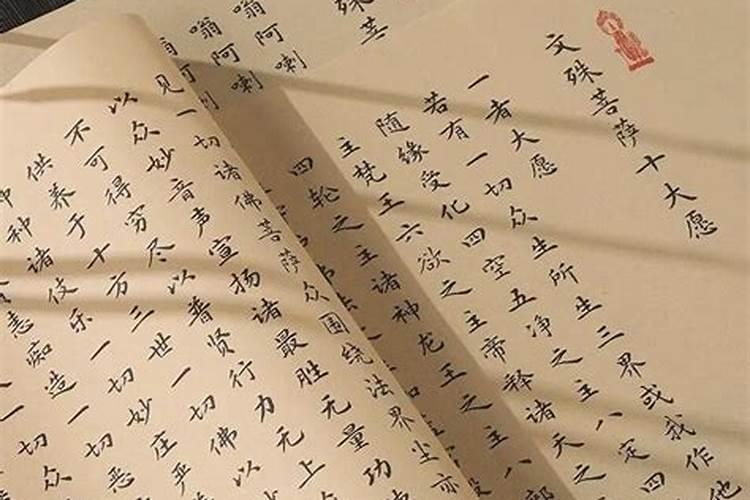 文殊菩萨十大愿
一者大愿
若有一切众生所生三界或我作他
随缘受化四空五净之主八定四
主梵王六欲之主帝释诸天之
四轮之主诸神龙王之主八部
殊菩
嗡阿喇
嗡阿喇
见一切诸佛菩萨众围绕法界尘亦
以众妙音声宣扬诸最胜无量功
不可得穷尽以普贤行力无上
供养于十方三世一切佛以
种诸伎乐一切妙庄严
恚痴造一切恶
一切众